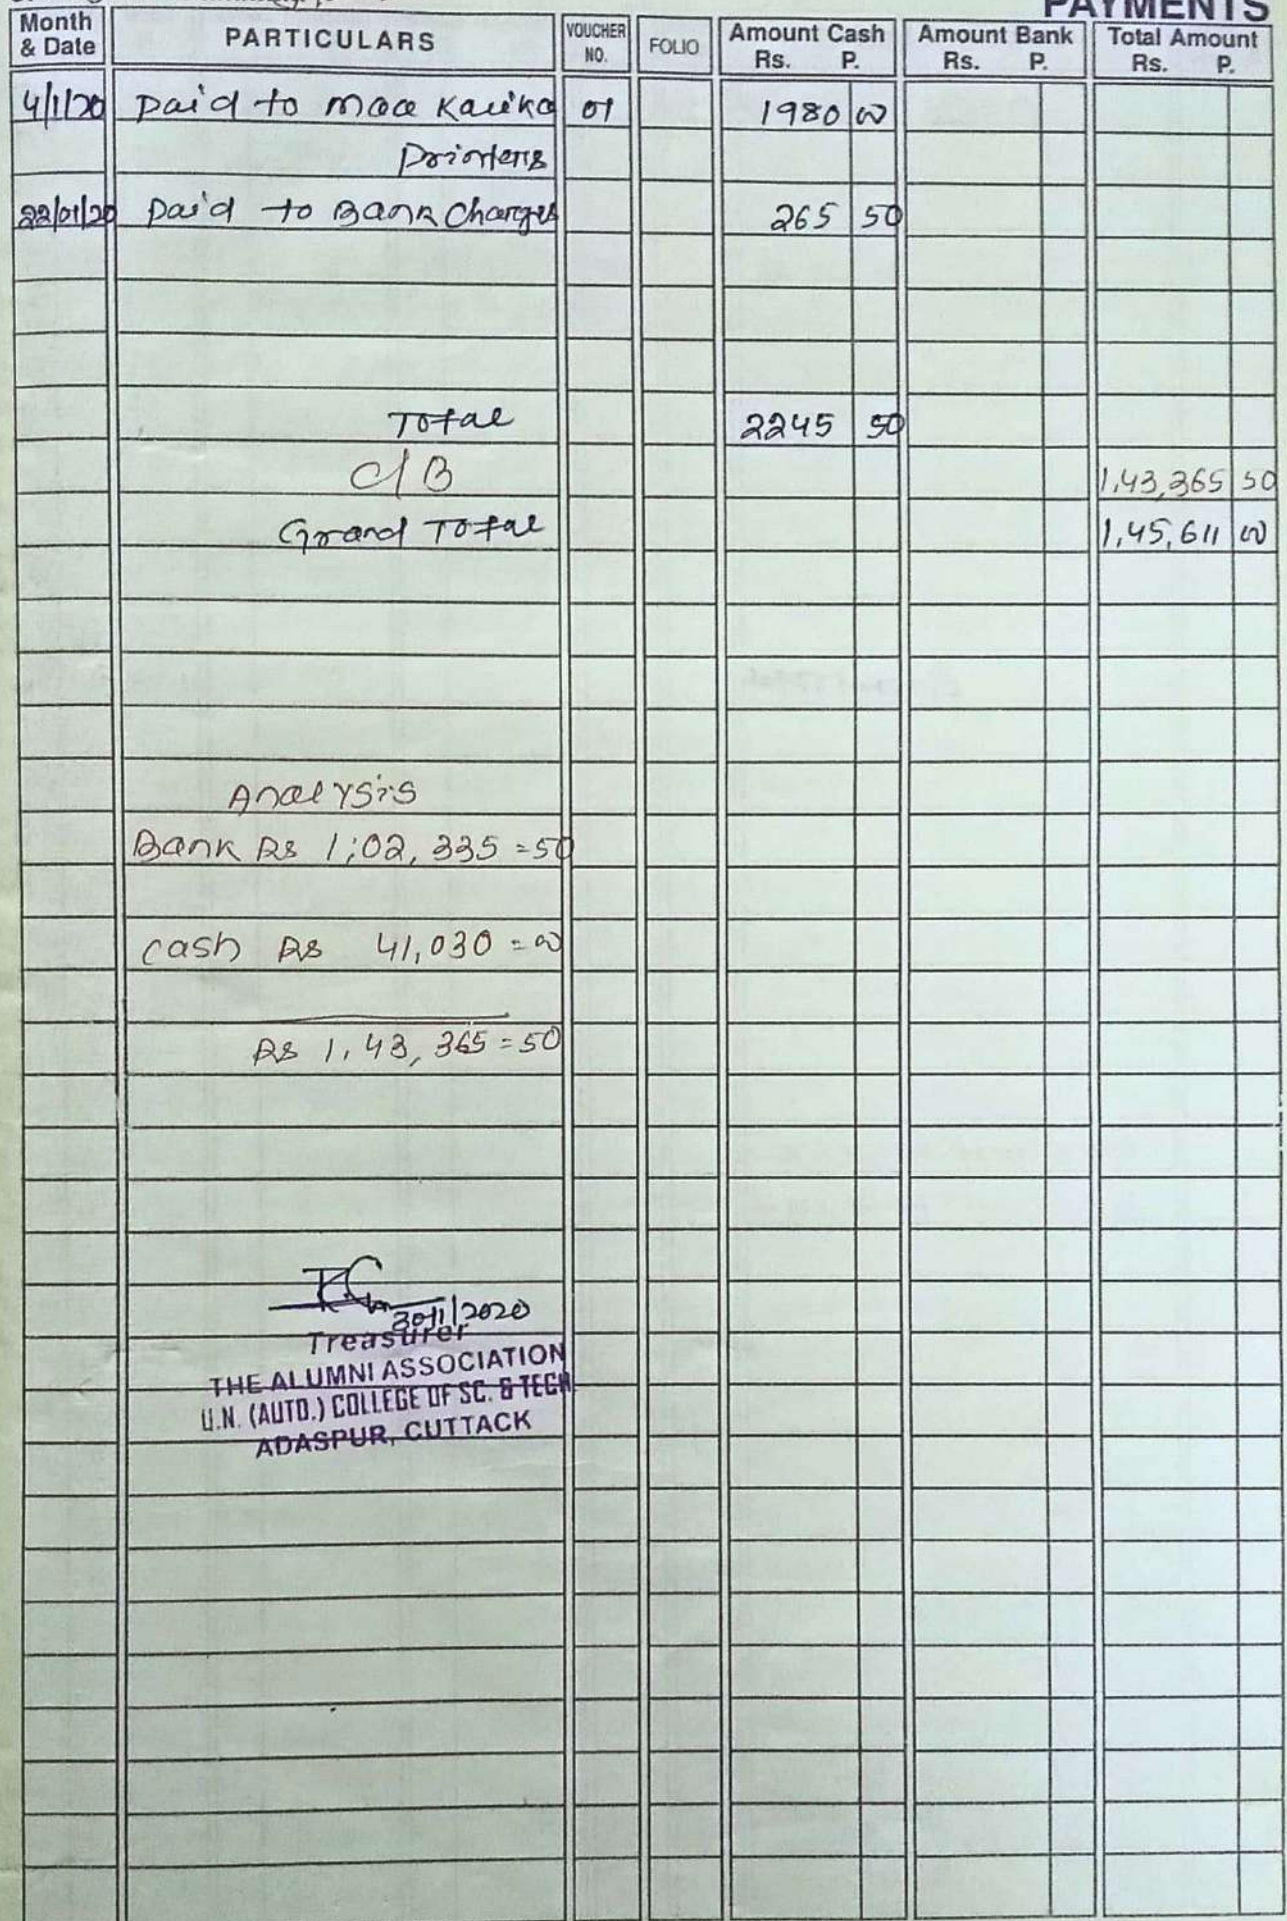 PAYMENTS
Month & Date PARTICULARS VOUCHER NO. FOLIO Amount Cash Rs. P. Amount Bank Rs. P. Total Amount Rs. P.
4/1/20 paid to maa Kalika 01 1980 00
Printers
22/01/20 paid to Bank Charges 265 50
Total 2245 50
C/B 1,43,365 50
Grand Total 1,45,611 00
Analysis
Bank Rs 1,02,335=50
Cash Rs 41,030=00
Rs 1,43,365=50
30/1/2020
Treasurer
THE ALUMNI ASSOCIATION
U.N. (AUTO.) COLLEGE OF SC. & TECH
ADASPUR, CUTTACK